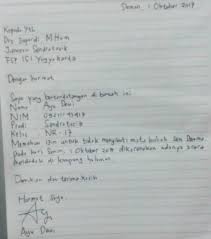 Senin, 1 Oktober 2017
Kepada Yth
Drs. Supardi M.Hum
Jurusan Sendratasik
FSP ISI Yogyakarta
Dengan hormat
Saya yang bertandatangan di bawah ini
Nama : Ayu Dewi
NIM
Prodi : Sendratasik
Kelas : NR-17
Memohon izin untuk tidak mengikuti mata kuliah Seni Drama
Pada hari Senin, 1 Oktober 2017 dikarenakan adanya acara
mendadak di kampung halaman.
Demikian dan terima kasih
Hormat Saya
Ayu Dewi